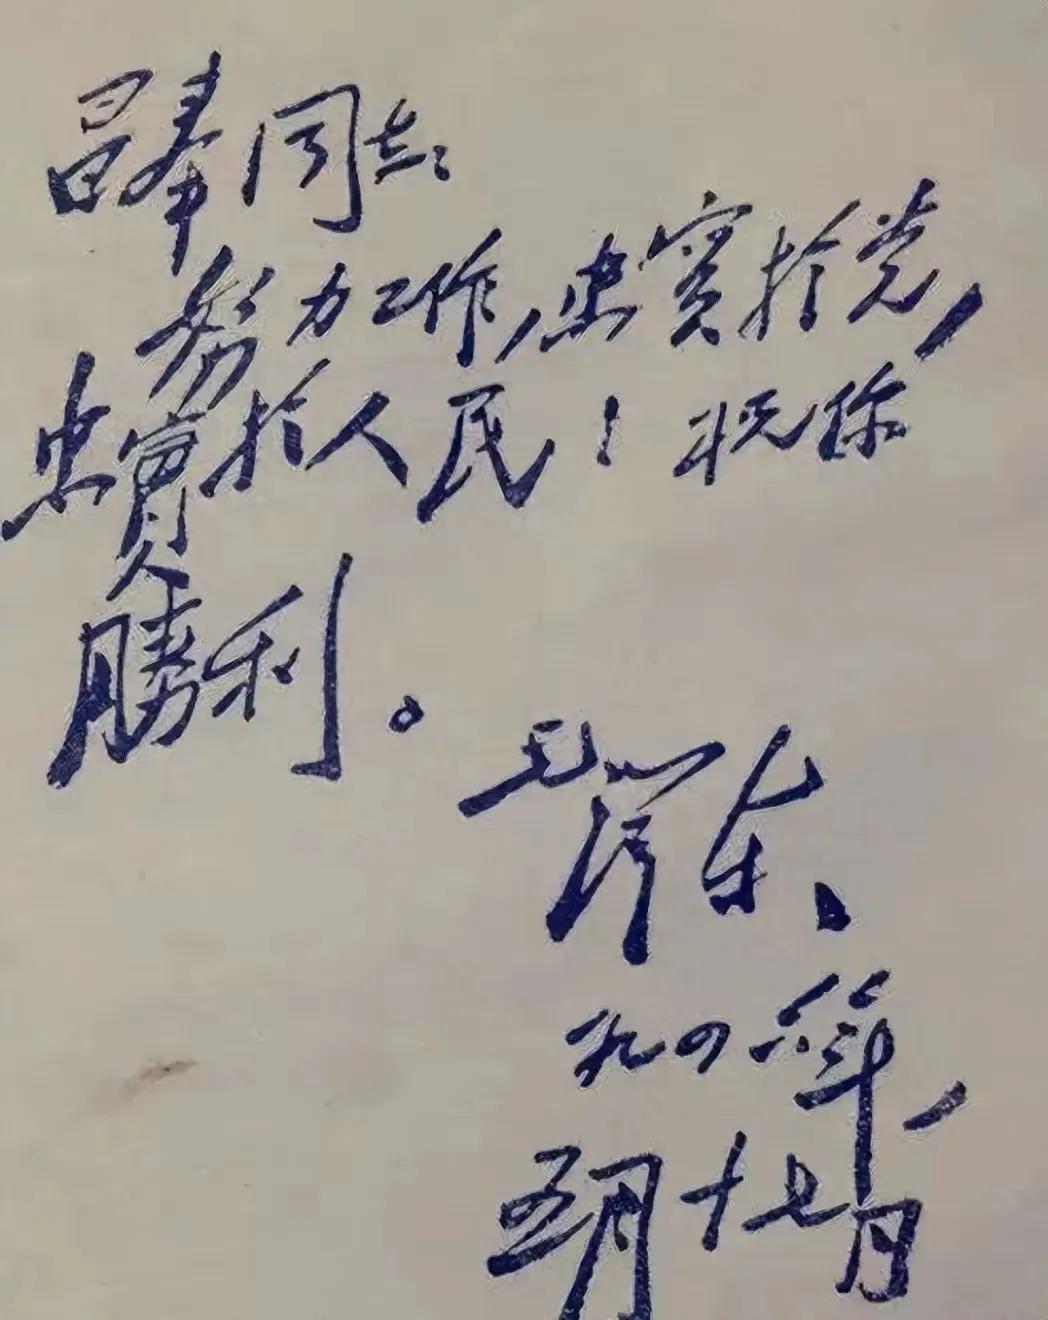 昌奉同志：
努力工作，忠实於党，
忠實於人民！祝你
勝利。
毛泽东、
一九四六年、
五月十七日